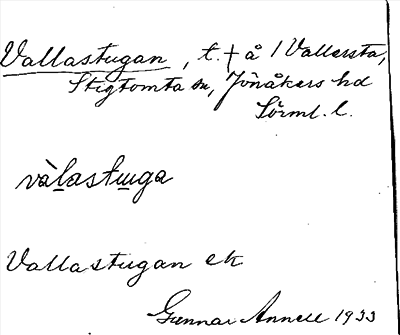 Vallastugan, t. † å 1 Vallersta,
Stigtomta sn, Jönåkers hd
Sörml. l.
vàlastuga
Vallastugan ek
Gunnar Annell 1933